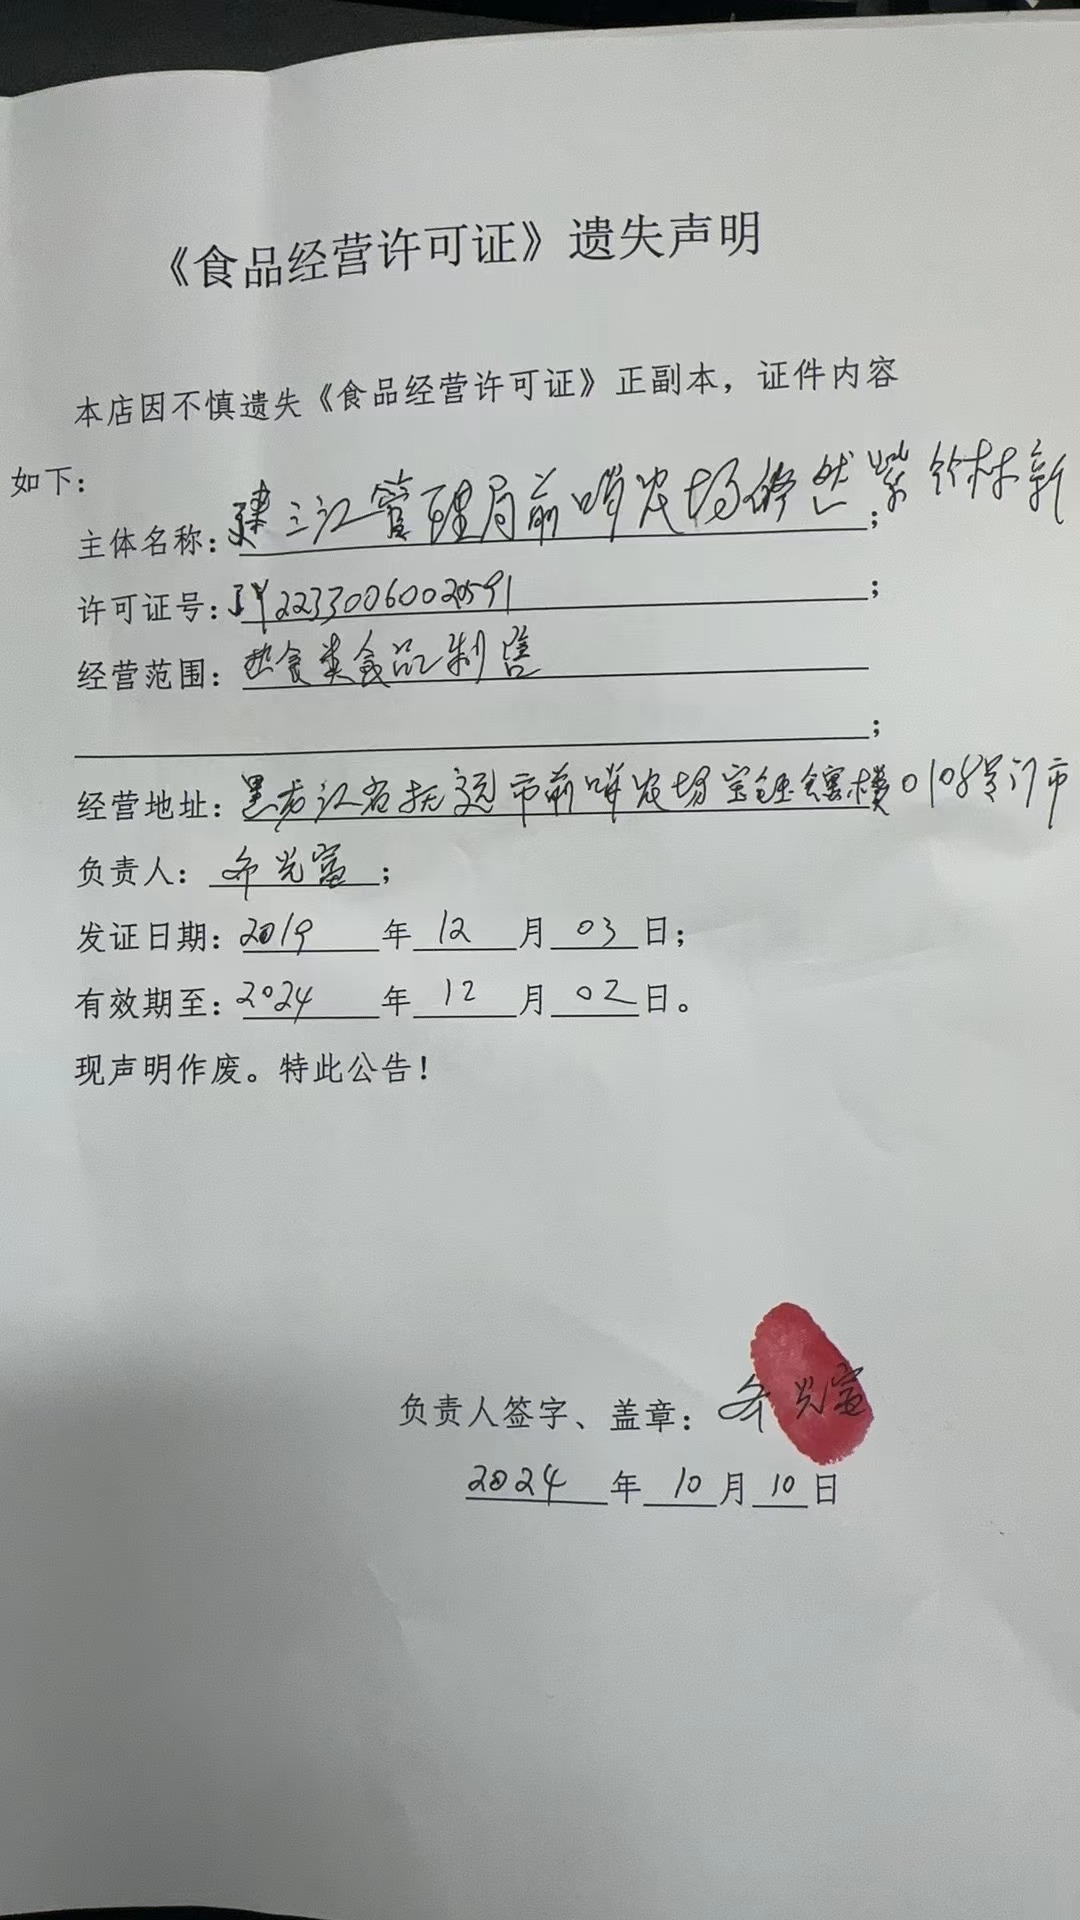 《食品经营许可证》遗失声明
本店因不慎遗失《食品经营许可证》正副本，证件内容
如下：
主体名称：建三江管理局前哨农场修然紫竹林新；
许可证号：JY22330060020591；
经营范围：热食类食品制售
；
经营地址：黑龙江省抚远市前哨农场宝钰楼0108号门市
负责人：乔光富；
发证日期：2019年12月03日；
有效期至：2024年12月02日。
现声明作废。特此公告！
负责人签字、盖章：乔光富
2024年10月10日